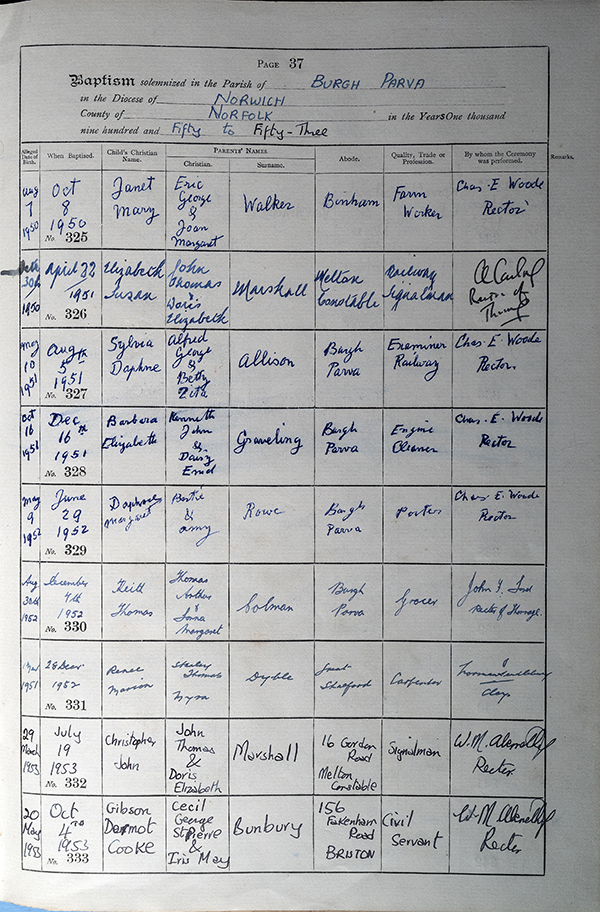 PAGE 37
Baptism solemnized in the Parish of BURGH PARVA
in the Diocese of NORWICH
County of NORFOLK in the Years One thousand
nine hundred and Fifty to Fifty-Three
Alleged Date of Birth. When Baptised. Child's Christian Name. PARENTS' NAMES Christian. Surname. Abode. Quality, Trade or Profession. By whom the Ceremony was performed. Remarks.
Aug 7 1950
Oct 8 1950
No. 325
Janet Mary
Eric George & Joan Margaret
Walker
Binham
Farm Worker
Chas. E. Woode Rector
30th 1950
April 22 1951
No. 326
Elizabeth Susan
John Thomas & Doris Elizabeth
Marshall
Melton Constable
Railway Signalman
Rector of
May 10 1951
Aug 5th 1951
No. 327
Sylvia Daphne
Alfred George & Betty Zita
Allison
Burgh Parva
Examiner Railway
Chas. E. Woode Rector
Oct 16 1951
Dec 16th 1951
No. 328
Barbara Elizabeth
Kenneth John & Daisy Enid
Graveling
Burgh Parva
Engine Cleaner
Chas. E. Woode Rector
May 9 1952
June 29 1952
No. 329
Margaret
Bertie & Amy
Rowe
Burgh Parva
Porter
Chas. E. Woode Rector
Aug 30th 1952
December 7th 1952
No. 330
Keith Thomas
Thomas Arthur & Margaret
Burgh Parva
Grocer
John Rector of
1951
28 Dec 1952
No. 331
Renee Marion
Stanley Thomas & Myra
Dyble
Great
Carpenter
29 March 1953
July 19 1953
No. 332
Christopher John
John Thomas & Doris Elizabeth
Marshall
16 Gordon Road Melton Constable
Signalman
W.M. Rector
20 May 1953
Oct 4 1953
No. 333
Gibson Dermot Cooke
Cecil George St Pierre & Iris May
Bunbury
156 Fakenham Road BRISTON
Civil Servant
W.M. Rector